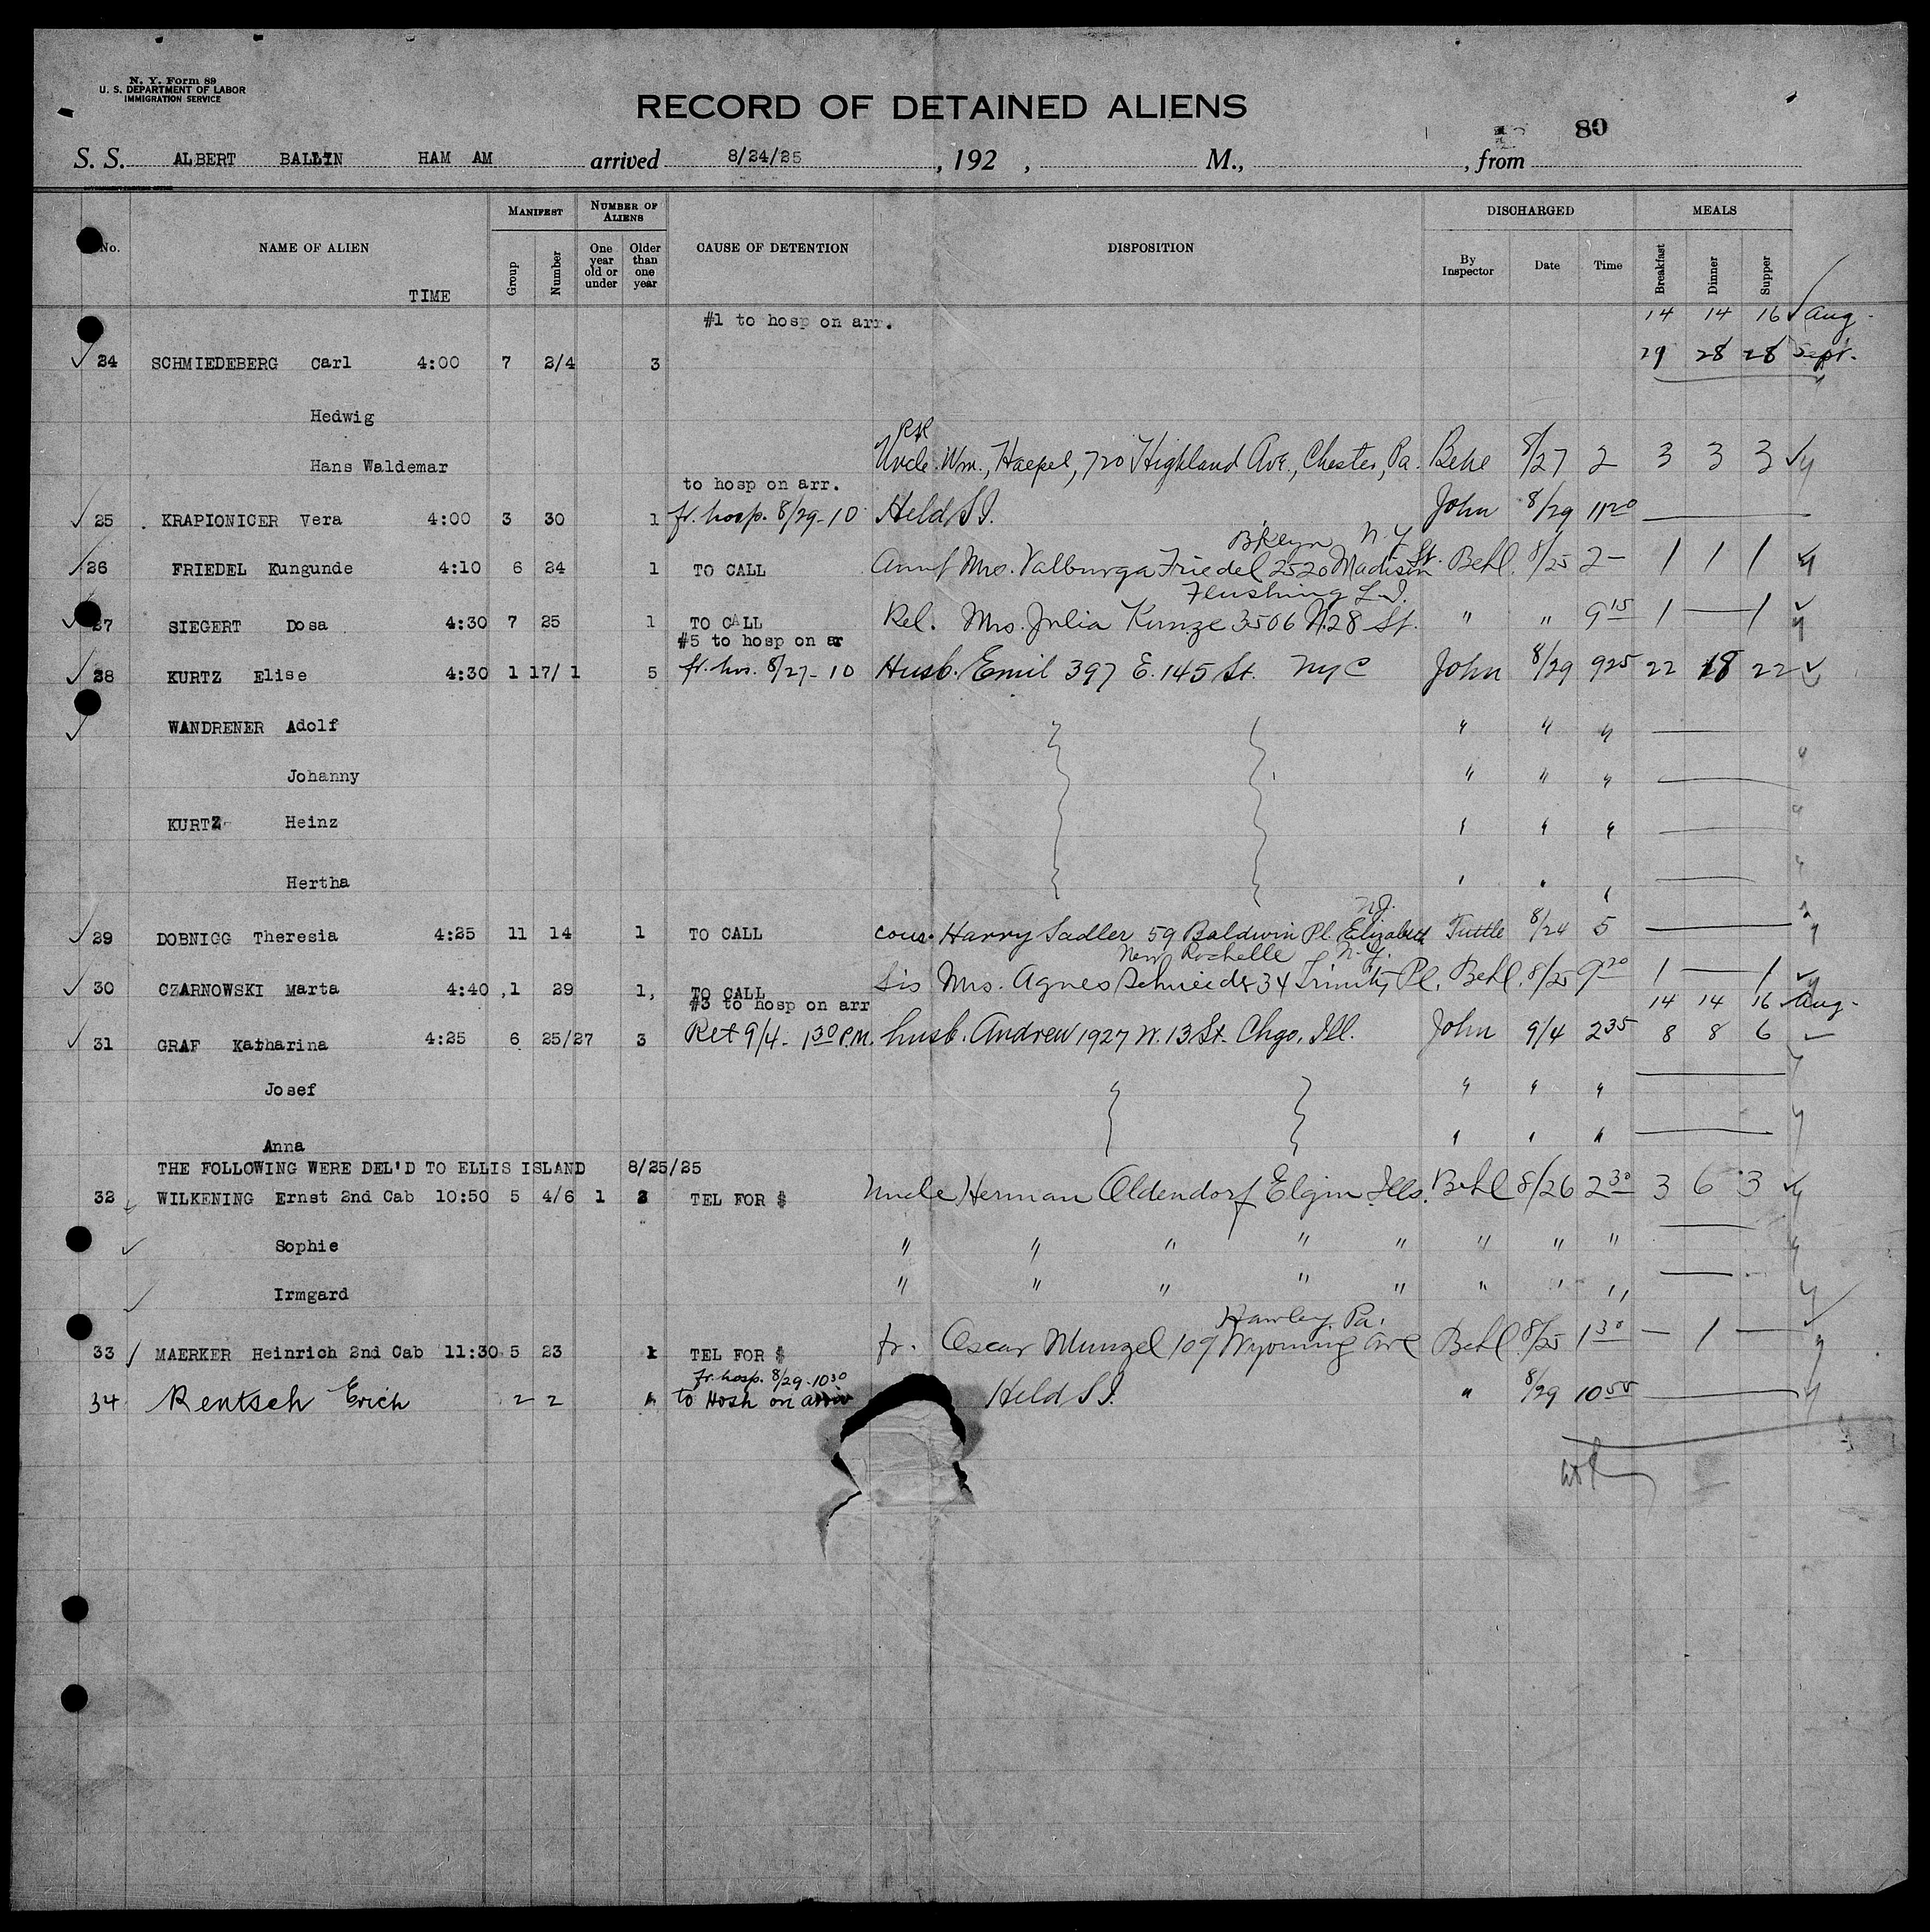 N. Y. Form 89
U. S. DEPARTMENT OF LABOR
IMMIGRATION SERVICE
RECORD OF DETAINED ALIENS
80
S. S. ALBERT BALLIN HAM AM arrived 8/24/25, 192 , M., , from
No. NAME OF ALIEN TIME MANIFEST Group Number NUMBER OF ALIENS One year old or under Older than one year CAUSE OF DETENTION DISPOSITION DISCHARGED By Inspector Date Time MEALS Breakfast Dinner Supper
#1 to hosp on arr. 14 14 16 Aug.
24 SCHMIEDEBERG Carl 4:00 7 2/4 3 29 28 28 Sept.
Hedwig
Hans Waldemar Uncle Wm. Haepel, 720 Highland Ave., Chester, Pa. Behl 8/27 2 3 3 3
to hosp on arr.
25 KRAPIONICER Vera 4:00 3 30 1 fr. hosp. 8/29-10 Held S I. John 8/29 11 20
B'klyn N Y
26 FRIEDEL Kungunde 4:10 6 24 1 TO CALL Aunt Mrs. Valburga Friedel 2520 Madison St. Behl 8/25 2 – 1 1 1
Flushing L. I.
27 SIEGERT Dosa 4:30 7 25 1 TO CALL Rel. Mrs. Julia Kunze 3506 N. 28 St. " " 9 15 1 — 1
#5 to hosp on ar
28 KURTZ Elise 4:30 1 17/1 5 fr. hos. 8/27-10 Husb. Emil 397 E. 145 St. NYC John 8/29 9 25 22 18 22
WANDRENER Adolf " " "
Johanny " " "
KURTZ Heinz " " "
Hertha " " "
N.J.
29 DOBNIGG Theresia 4:25 11 14 1 TO CALL cous. Harry Sadler 59 Baldwin Pl. Elizabeth Tuttle 8/24 5
New Rochelle N.Y.
30 CZARNOWSKI Marta 4:40 1 29 1 TO CALL Sis Mrs. Agnes Schneider 34 Trinity Pl. Behl 8/25 9 20 1 — 1
#3 to hosp on arr 14 14 16 Aug.
31 GRAF Katharina 4:25 6 25/27 3 Ret 9/4 - 1 30 P.M. husb. Andrew 1927 W. 13 St. Chgo. Ill. John 9/4 2 35 8 8 6
Josef " " "
Anna " " "
THE FOLLOWING WERE DEL'D TO ELLIS ISLAND 8/25/25
32 WILKENING Ernst 2nd Cab 10:50 5 4/6 1 2 TEL FOR $ Uncle Herman Oldendorf Elgin Ills. Behl 8/26 2 30 3 6 3
Sophie " " " " " " " "
Irmgard " " " " " " " "
Hawley Pa.
33 MAERKER Heinrich 2nd Cab 11:30 5 23 1 TEL FOR $ fr. Oscar Munzel 109 Wyoming Ave Behl 8/25 1 30 — 1 —
fr. hosp. 8/29-10 30
34 Rentsch Erich 2 2 1 to Hosp on arriv Held S I. " 8/29 10 55